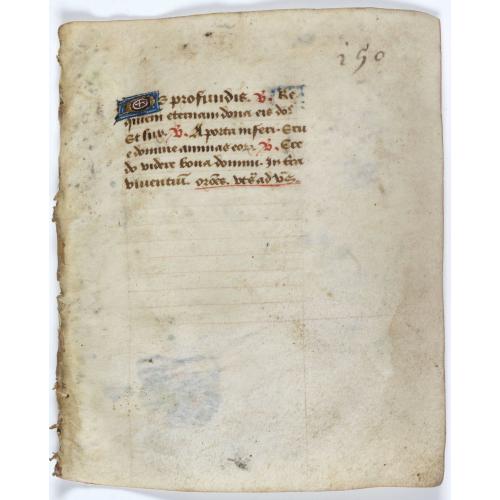 150
De profundis. V. Re
quiem eternam dona eis do
Et lux. V. A porta inferi. Eru
e domine animas eorz. V. Cre
do videre bona domini. In tra
viventiu. oroes. vts ad v